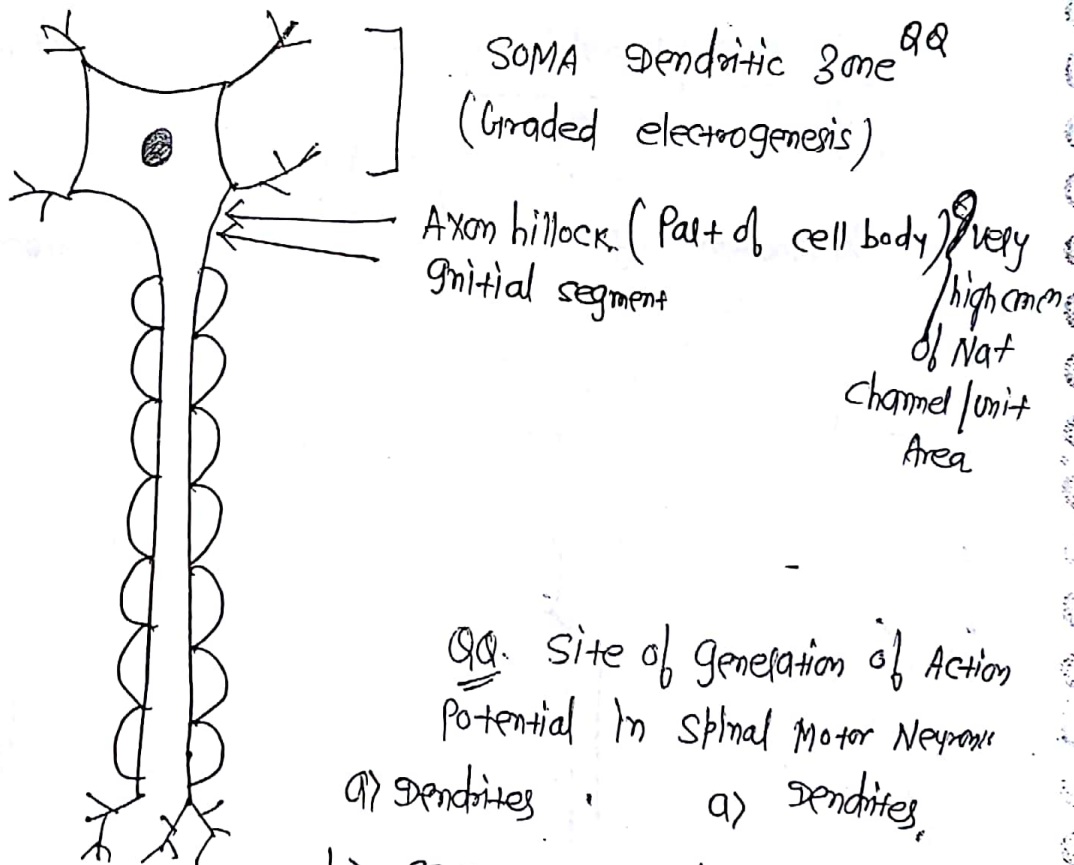 SOMA Dendritic Zone QQ
(Graded electrogenesis)
Axon hillock (Part of cell body) very
Initial segment
high concn
of Na+
channel/unit
Area
QQ. Site of generation of Action
Potential in Spinal Motor Neurons
a) Dendrites a) Dendrites
b)